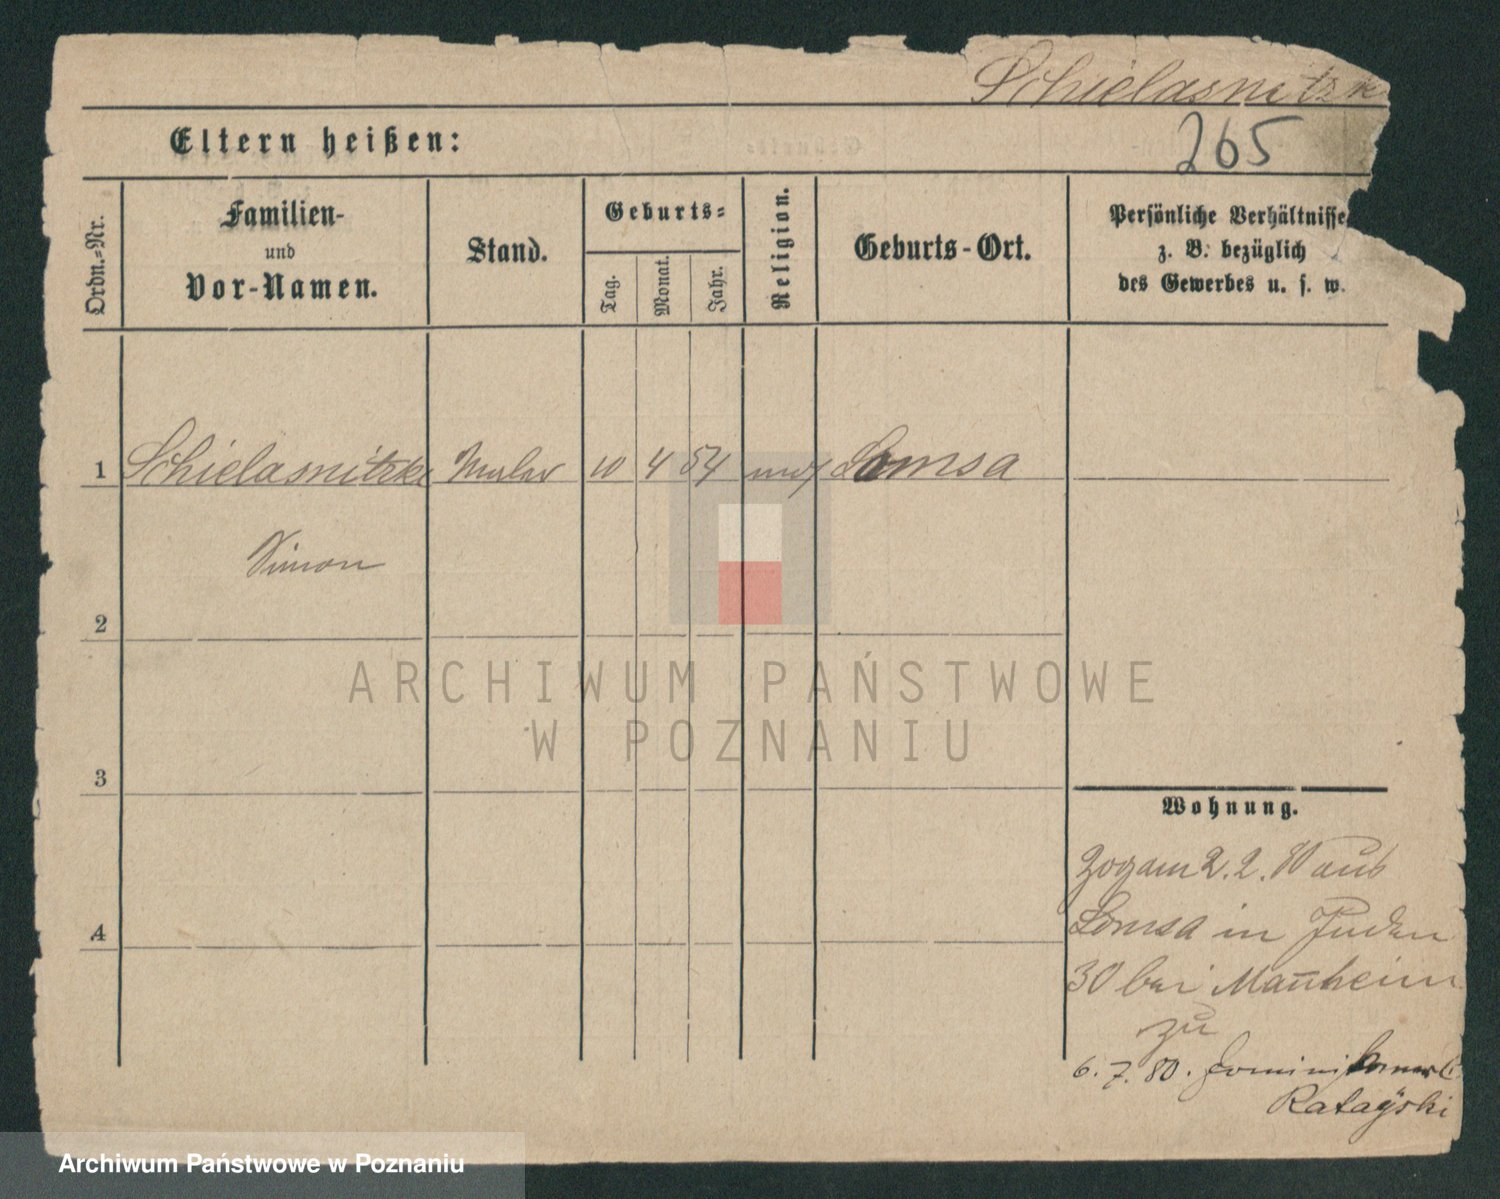 Schielasnitzk
265
Eltern heißen:
Ordn.-Nr.
Familien-
und
Vor-Namen.
Stand.
Geburts-
Tag.
Monat.
Jahr.
Religion.
Geburts-Ort.
Persönliche Verhältnisse
z. B. bezüglich
des Gewerbes u. s. w.
1 Schielasnitzki 10 4 54 mos Lomsa
Simon
2
3
4
Wohnung.
Zog am 2. 2. 80 aus
Lomsa in Juden
30 bei Manheim
zu
6. 7. 80. Dominikaner
Ratayski
ARCHIWUM PAŃSTWOWE
W POZNANIU
Archiwum Państwowe w Poznaniu